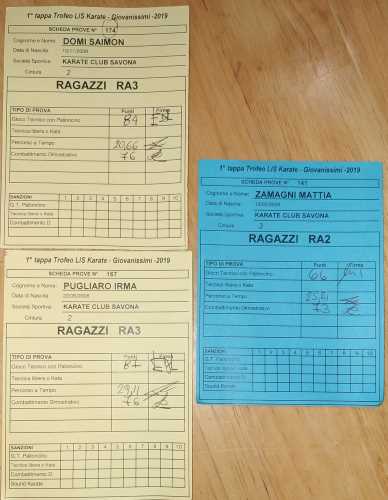 1° tappa Trofeo LIS Karate - Giovanissimi -2019
SCHEDA PROVE N° 174
Cognome e Nome: DOMI SAIMON
Data di Nascita
Società Sportiva KARATE CLUB SAVONA
Cintura 2
RAGAZZI RA3
TIPO DI PROVA Punti Firma
Gioco Tecnico con Palloncino 84
Tecnica libera o Kata
Percorso a Tempo 20,66
Combattimento Dimostrativo 76
SANZIONI 1 2 3 4 5 6 7 8 9 10
G.T. Palloncino
Tecnica libera o Kata
Combattimento D.
1° tappa Trofeo LIS Karate - Giovanissimi -2019
SCHEDA PROVE N° 167
Cognome e Nome: PUGLIARO IRMA
Data di Nascita
Società Sportiva KARATE CLUB SAVONA
Cintura 2
RAGAZZI RA3
TIPO DI PROVA Punti Firma
Gioco Tecnico con Palloncino 87
Tecnica libera o Kata
Percorso a Tempo 29,11
Combattimento Dimostrativo 76
SANZIONI 1 2 3 4 5 6 7 8 9 10
G.T. Palloncino
Tecnica libera o Kata
Combattimento D.
Sound Karate
1° tappa Trofeo LIS Karate - Giovanissimi -2019
SCHEDA PROVE N°
Cognome e Nome: ZAMAGNI MATTIA
Data di Nascita
Società Sportiva KARATE CLUB SAVONA
Cintura
RAGAZZI RA2
TIPO DI PROVA Punti Firma
Gioco Tecnico con Palloncino 66
Tecnica libera o Kata
Percorso a Tempo
Combattimento Dimostrativo 73
SANZIONI 1 2 3 4 5 6 7 8 9 10
G.T. Palloncino
Tecnica libera o Kata
Combattimento D.
Sound Karate